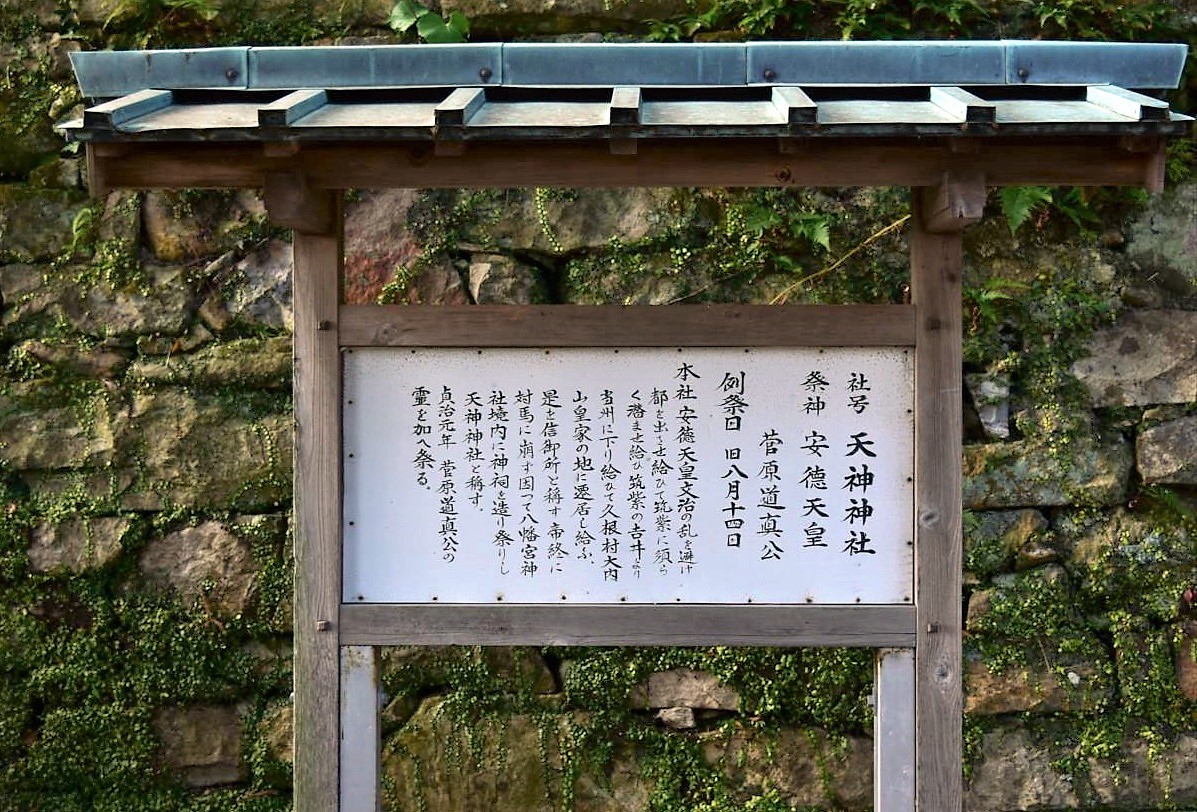 社号 天神神社
祭神 安德天皇
菅原道真公
例祭日 旧八月十四日
本社 安徳天皇文治の乱を避け
都を出させ給ひて筑紫に須ら
く潜ませ給ひ筑紫の吉井より
当州に下り給ひて久根村大内
山皇家の地に遷居し給ふ、
是を信御所と称す 帝終に
対馬に崩ず因つて八幡宮神
社境内に神祠を造り祭りし
天神神社と稱す。
貞治元年 菅原道真公の
霊を加へ祭る。